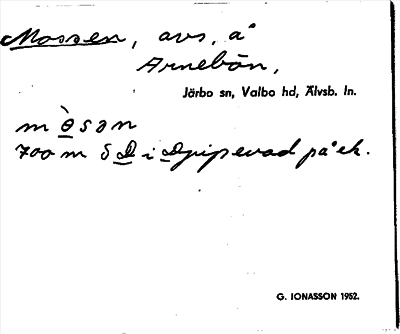 Mossen, avs. å
Arnebôn,
Järbo sn, Valbo hd, Älvsb. ln.
m ò s ə n
700 m S D i Gripevad på ek.
G. IONASSON 1952.